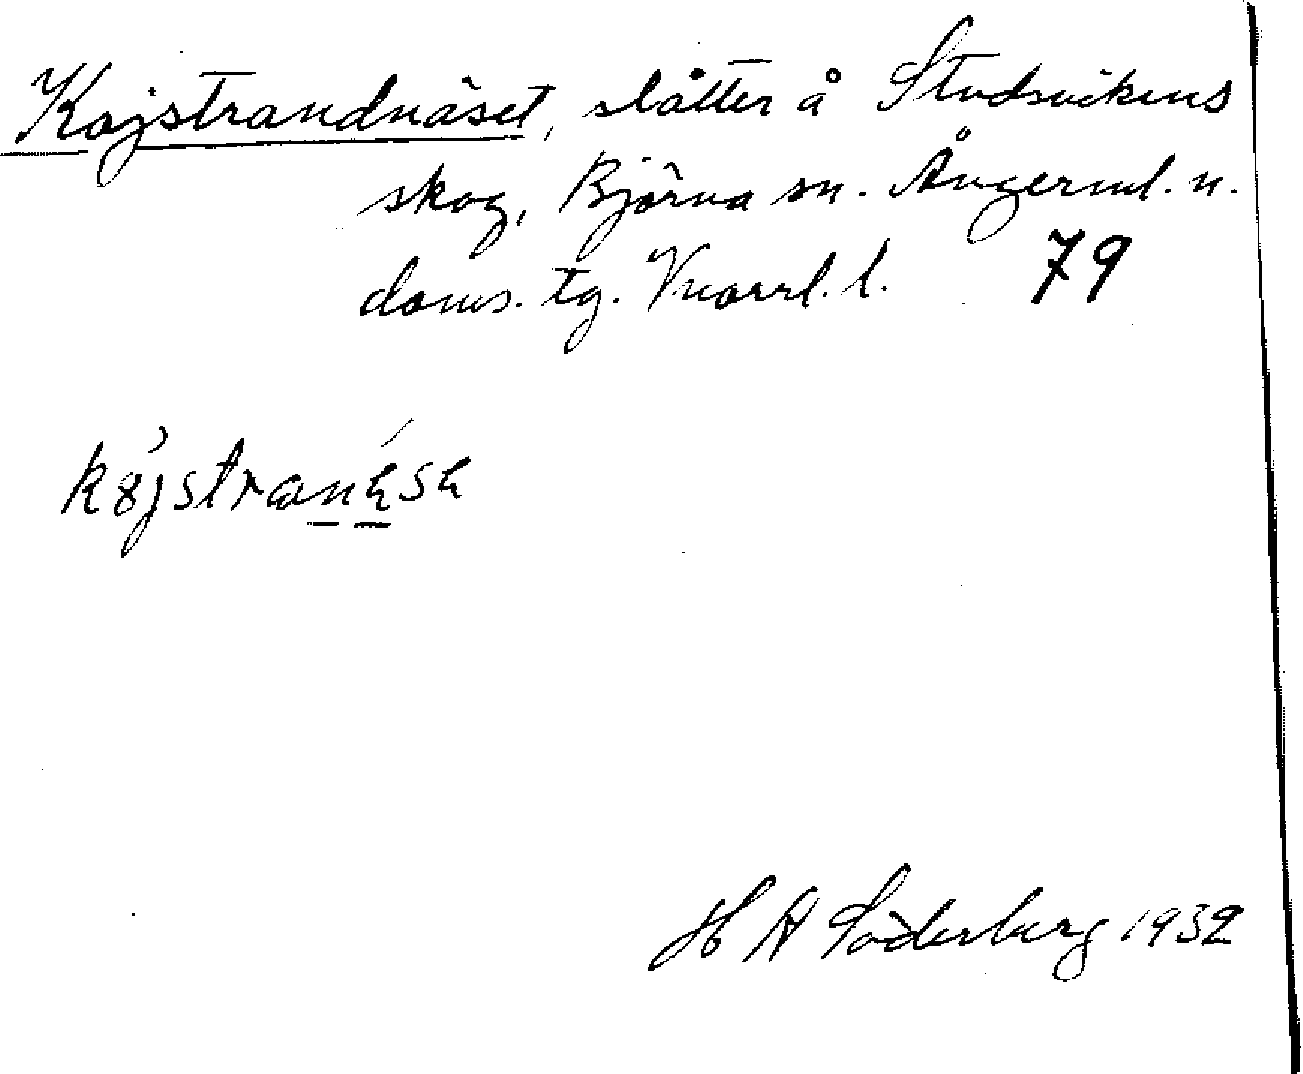 Kojstrandnäset, slåtter å Studsvikens
skog, Björna sn. Ångerml. n.
doms. tg. Vnorrl. l. 79
H A Söderberg 1932